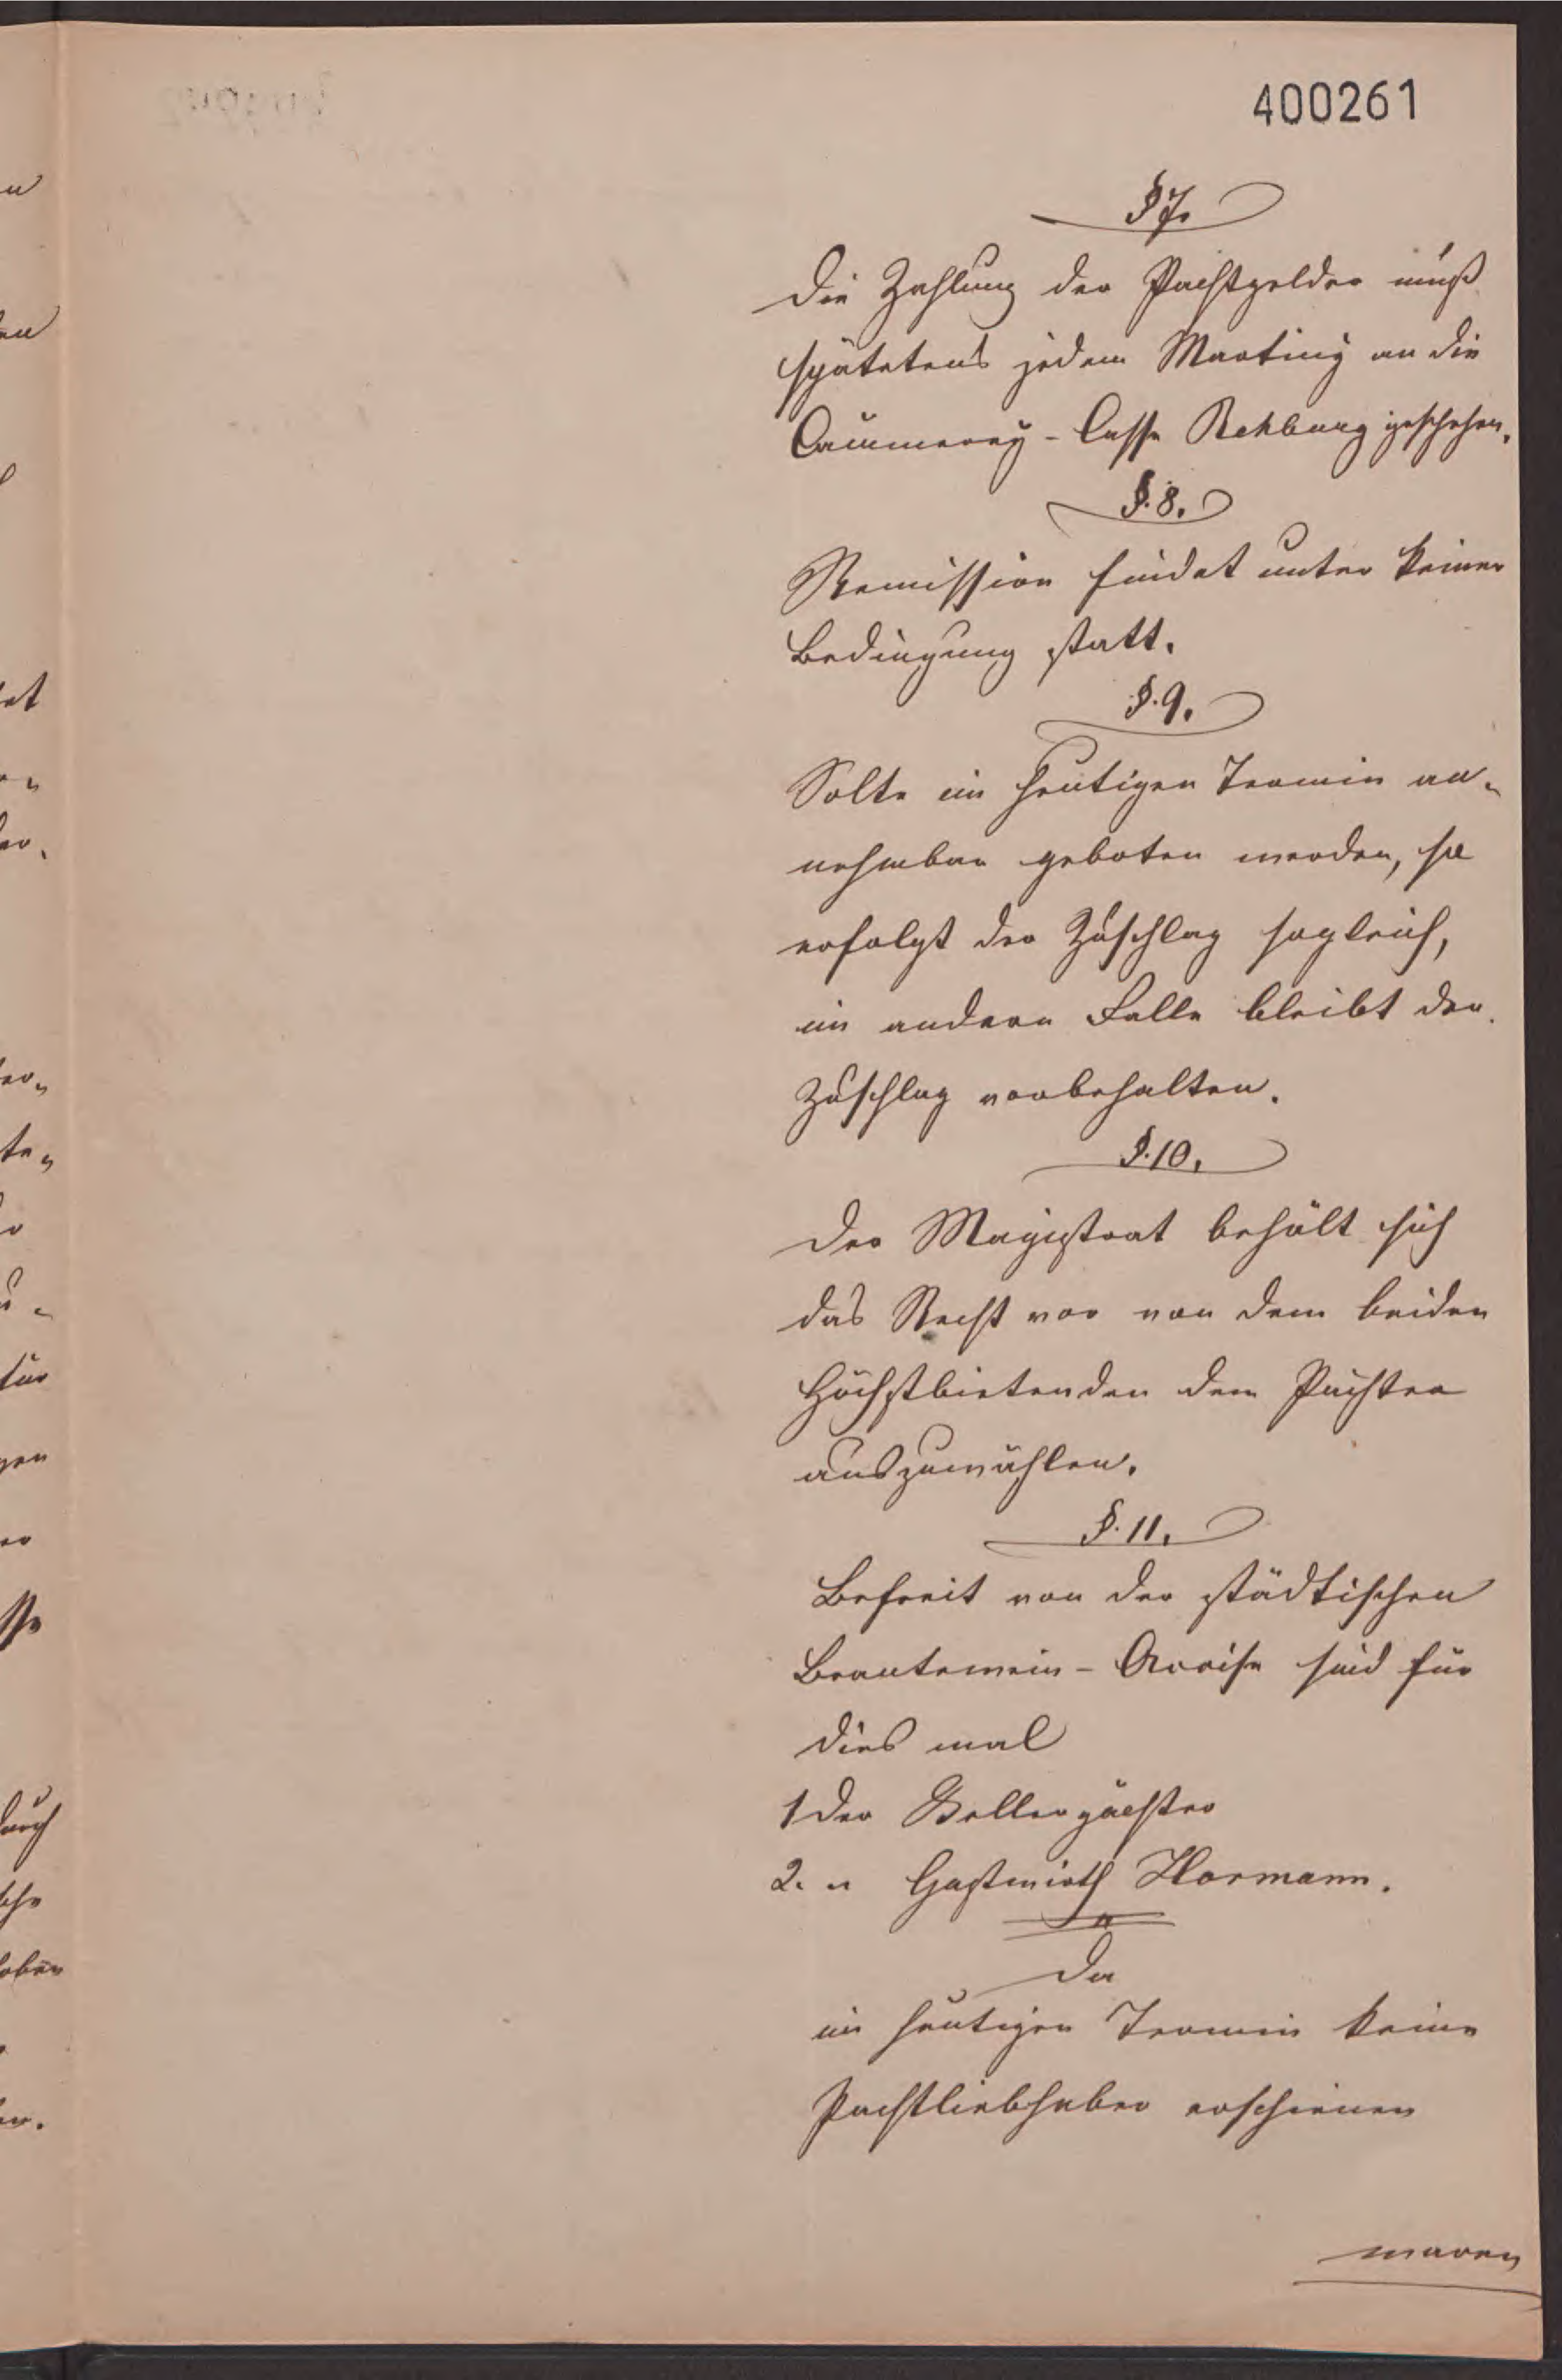 400261
§ 7.
Die Zahlung der Pachtgelder muß
spätetens jedem Martiny an die
Caemmerey-Casse Rehburg geschehen.
§. 8.
Remission findet unter keiner
Bedingung statt.
§. 9.
Solte im heutigen Termin an-
nehmbar geboten werden, so
erfolgt der Zuschlag sogleich,
im andern Falle bleibt der
Zuschlag vorbehalten.
§. 10.
Der Magistrat behält sich
das Recht vor von dem beiden
Höchstbietenden dem Pächter
auszuwählen.
§. 11.
Befreit von der städtischen
Brantewein-Accise sind für
dies mal
1 der Kellerpächter
2. " Gastwirth Hormann.
Da
im heutigen Termin keine
Pachtliebhaber erschienen
waren